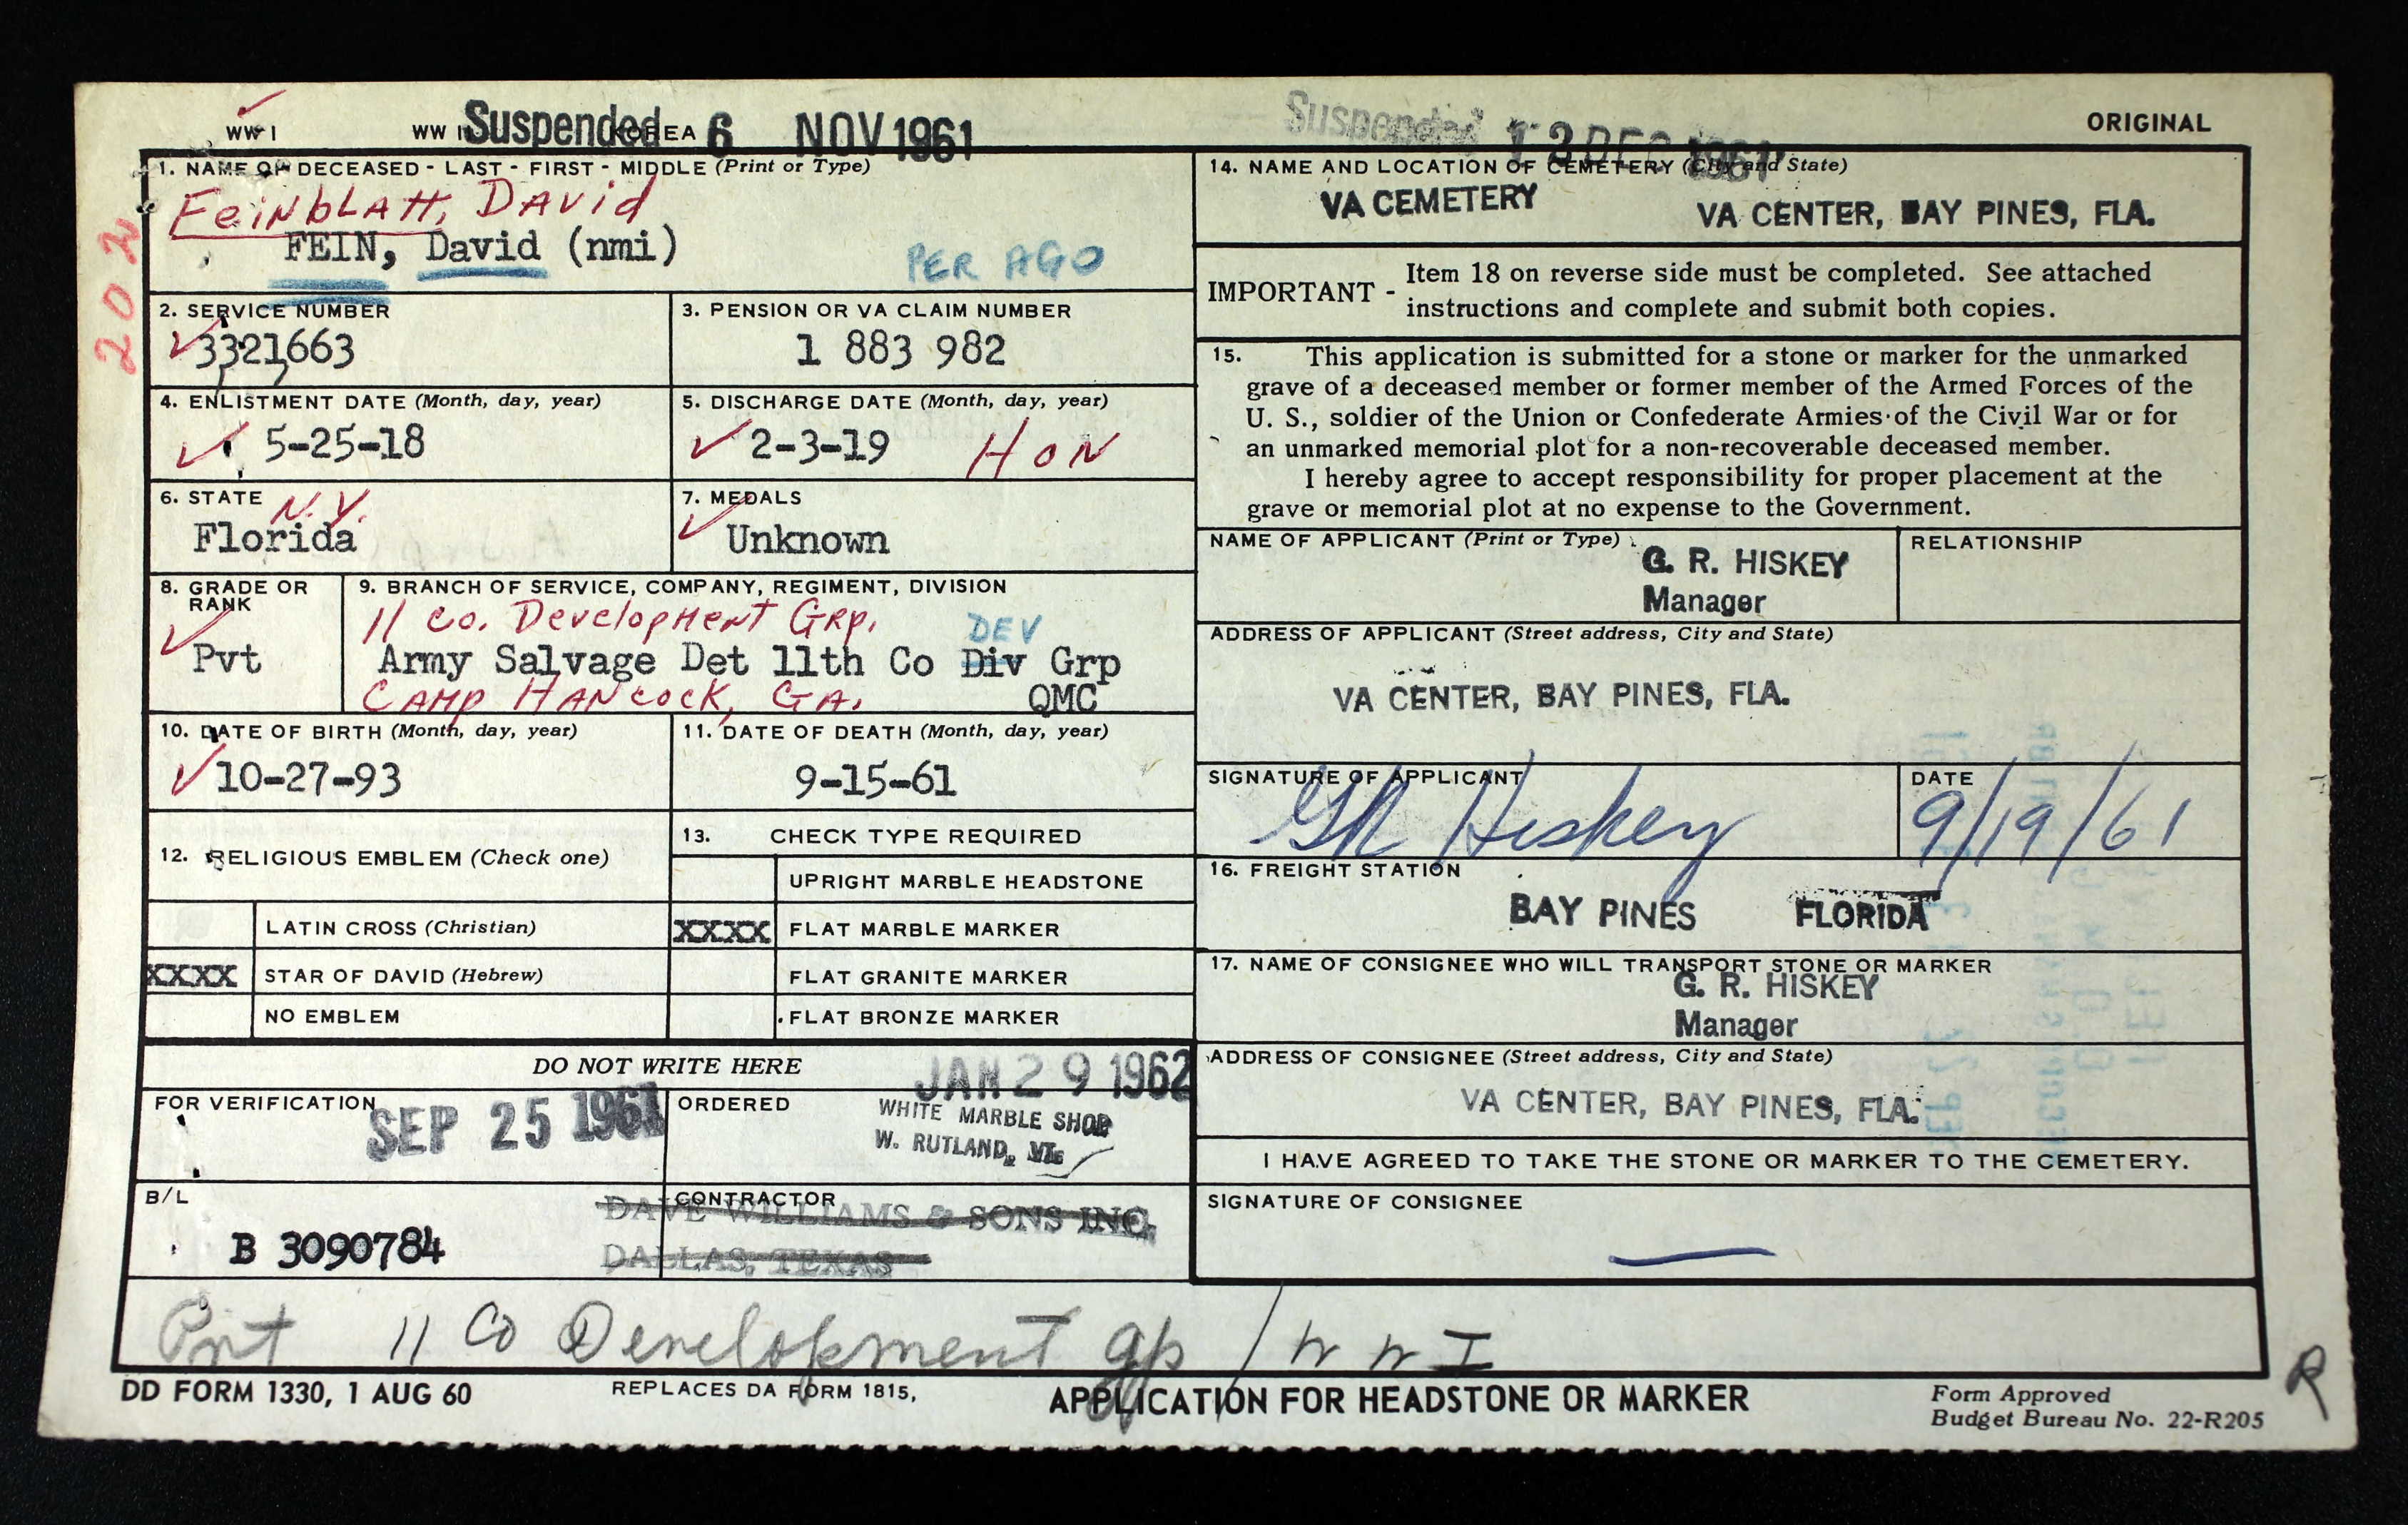 WW I WW II KOREA Suspended 6 NOV 1961 Suspended 1961 ORIGINAL
202
1. NAME OF DECEASED - LAST - FIRST - MIDDLE (Print or Type)
Feinblatt, David
FEIN, David (nmi) PER AGO
2. SERVICE NUMBER
3321663
3. PENSION OR VA CLAIM NUMBER
1 883 982
4. ENLISTMENT DATE (Month, day, year)
5-25-18
5. DISCHARGE DATE (Month, day, year)
2-3-19 HON
6. STATE N.Y.
Florida
7. MEDALS
Unknown
8. GRADE OR
RANK
Pvt
9. BRANCH OF SERVICE, COMPANY, REGIMENT, DIVISION
11 Co. Development Grp.
DEV
Army Salvage Det 11th Co Div Grp
Camp Hancock, GA. QMC
10. DATE OF BIRTH (Month, day, year)
10-27-93
11. DATE OF DEATH (Month, day, year)
9-15-61
12. RELIGIOUS EMBLEM (Check one)
LATIN CROSS (Christian)
XXXX STAR OF DAVID (Hebrew)
NO EMBLEM
13. CHECK TYPE REQUIRED
UPRIGHT MARBLE HEADSTONE
XXXX FLAT MARBLE MARKER
FLAT GRANITE MARKER
FLAT BRONZE MARKER
DO NOT WRITE HERE
FOR VERIFICATION
SEP 25 1961
ORDERED
JAN 29 1962
WHITE MARBLE SHOP
W. RUTLAND, VT.
B/L
B 3090784
CONTRACTOR
DAVE WILLIAMS & SONS INC.
DALLAS, TEXAS
14. NAME AND LOCATION OF CEMETERY (City and State)
VA CEMETERY VA CENTER, BAY PINES, FLA.
IMPORTANT - Item 18 on reverse side must be completed. See attached
instructions and complete and submit both copies.
15. This application is submitted for a stone or marker for the unmarked
grave of a deceased member or former member of the Armed Forces of the
U. S., soldier of the Union or Confederate Armies of the Civil War or for
an unmarked memorial plot for a non-recoverable deceased member.
I hereby agree to accept responsibility for proper placement at the
grave or memorial plot at no expense to the Government.
NAME OF APPLICANT (Print or Type)
G. R. HISKEY
Manager
RELATIONSHIP
ADDRESS OF APPLICANT (Street address, City and State)
VA CENTER, BAY PINES, FLA.
SIGNATURE OF APPLICANT
GR Hiskey
DATE
9/19/61
16. FREIGHT STATION
BAY PINES FLORIDA
17. NAME OF CONSIGNEE WHO WILL TRANSPORT STONE OR MARKER
G. R. HISKEY
Manager
ADDRESS OF CONSIGNEE (Street address, City and State)
VA CENTER, BAY PINES, FLA.
I HAVE AGREED TO TAKE THE STONE OR MARKER TO THE CEMETERY.
SIGNATURE OF CONSIGNEE
Pvt 11 Co Development gp / WWI
R
DD FORM 1330, 1 AUG 60 REPLACES DA FORM 1815, APPLICATION FOR HEADSTONE OR MARKER
Form Approved
Budget Bureau No. 22-R205